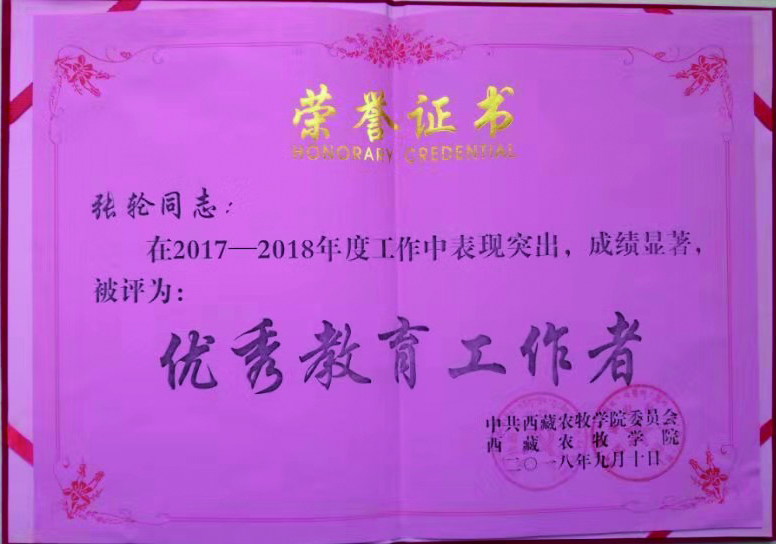 荣誉证书
HONORARY CREDENTIAL
张轮同志：
在2017—2018年度工作中表现突出，成绩显著，
被评为：
优秀教育工作者
中共西藏农牧学院委员会
西藏农牧学院
二〇一八年九月十日